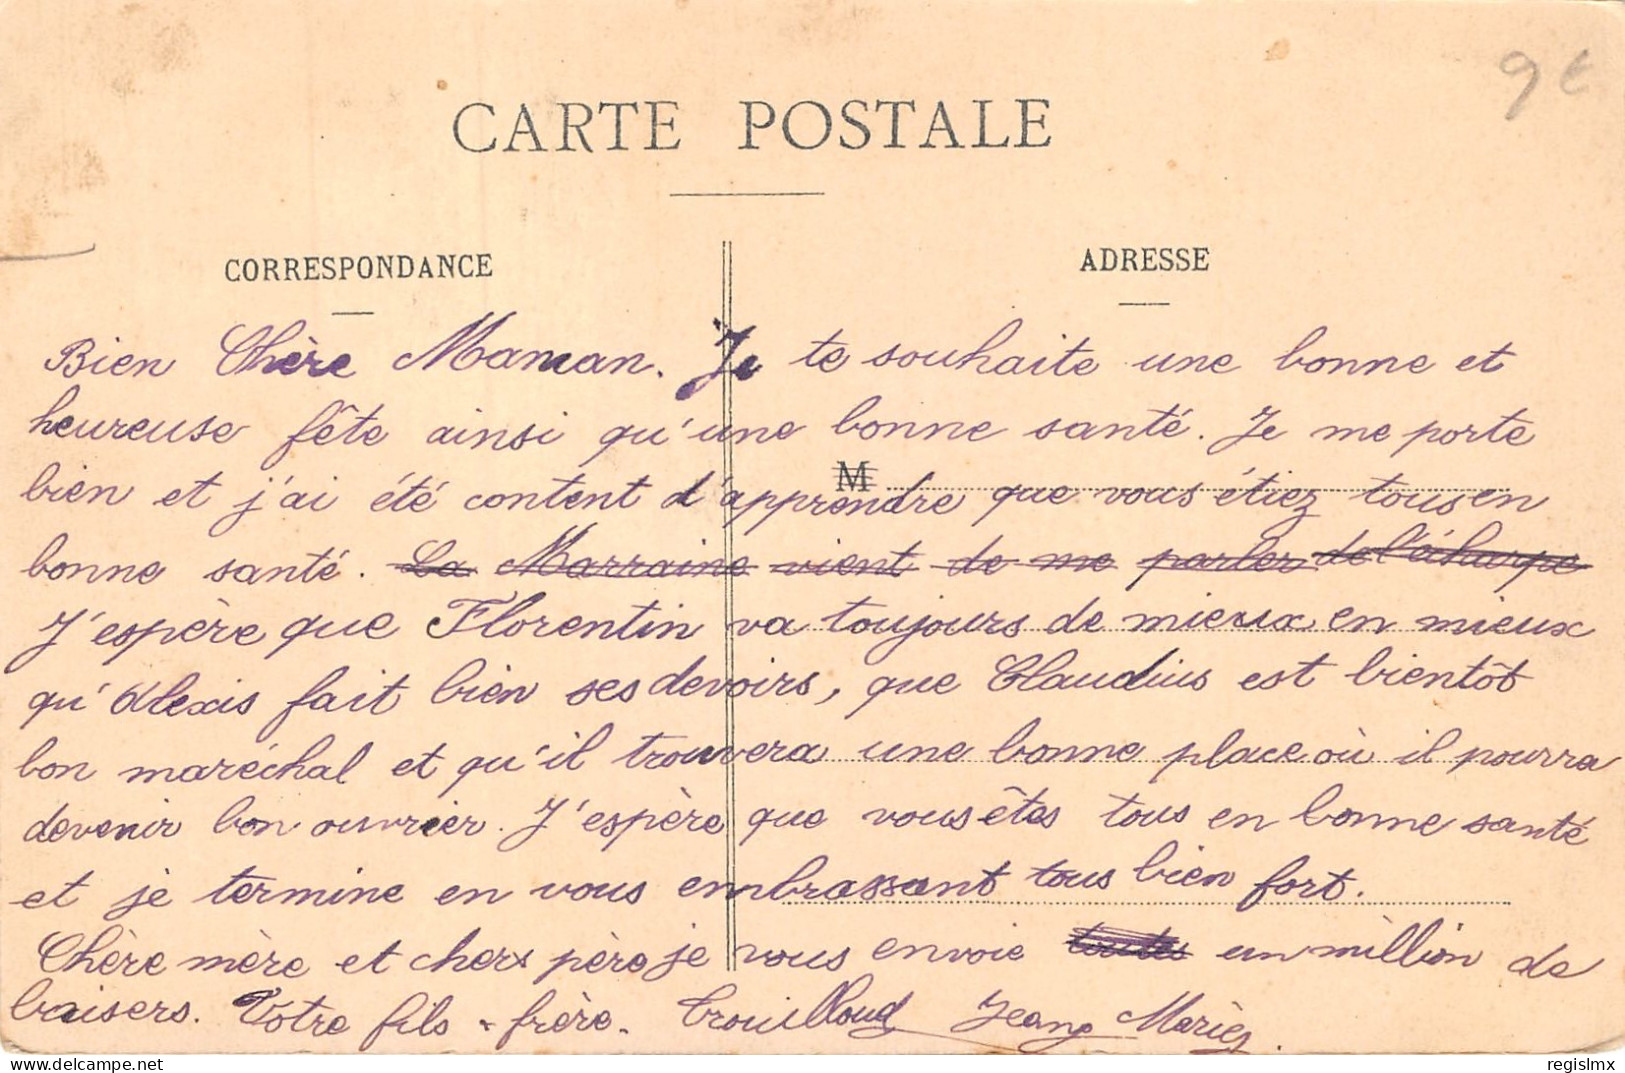 9€
CARTE POSTALE
CORRESPONDANCE
ADRESSE
Bien Chère Maman. Je te souhaite une bonne et
heureuse fête ainsi qu'une bonne santé. Je me porte
M
bien et j'ai été content d'apprendre que vous étiez tous en
bonne santé. La Marraine vient de me parler de l'écharpe
J'espère que Florentin va toujours de mieux en mieux
qu'Alexis fait bien ses devoirs, que Claudius est bientôt
bon maréchal et qu'il trouvera une bonne place où il pourra
devenir bon ouvrier. J'espère que vous êtes tous en bonne santé
et je termine en vous embrassant tous bien fort.
Chère mère et cher père je vous envoie toutes un million de
baisers. Votre fils - frère. Trouilloud Jean Marie
delcampe.net
regislmx